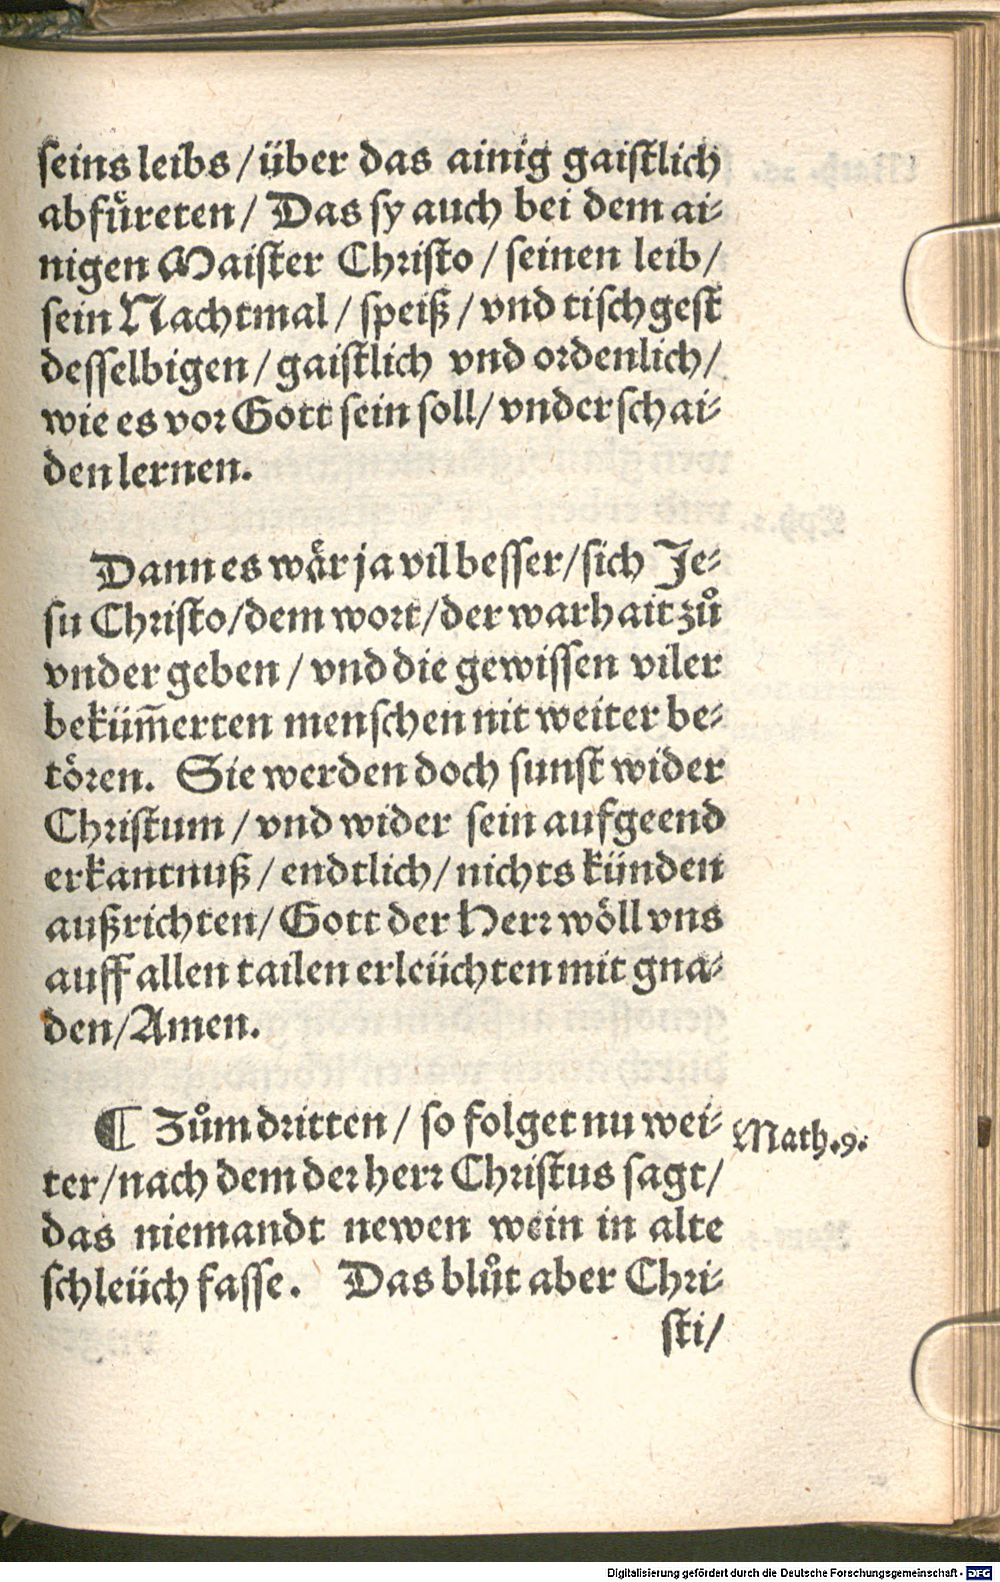 seins leibs / über das ainig gaistlich
abfuͤreten / Das sy auch bei dem ai⸗
nigen Maister Christo / seinen leib /
sein Nachtmal / speiß / vnd tischgest
desselbigen / gaistlich vnd ordenlich /
wie es vor Gott sein soll / vnderschai⸗
den lernen.
Dann es waͤr ja vil besser / sich Je⸗
su Christo / dem wort / der warhait zuͦ
vndergeben / vnd die gewissen viler
beküm̄erten menschen nit weiter be⸗
toͤren. Sie werden doch sunst wider
Christum / vnd wider sein aufgeend
erkantnuß / endtlich / nichts künden
außrichten / Gott der Herr woͤll vns
auff allen tailen erleüchten mit gna⸗
den / Amen.
¶ Zuͦm dritten / so folget nu wei⸗
Math.9.
ter / nach dem der herr Christus sagt /
das niemandt newen wein in alte
schleüch fasse. Das bluͦt aber Chri⸗
sti /
Digitalisierung gefördert durch die Deutsche Forschungsgemeinschaft - DFG